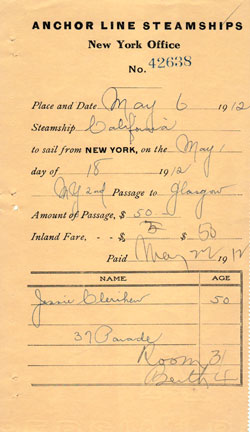 ANCHOR LINE STEAMSHIPS
New York Office
No. 42638
Place and Date May 6 1912
Steamship California
to sail from NEW YORK, on the May
day of 18 1912
NY 2nd Passage to Glasgow
Amount of Passage, $ 50
Inland Fare, - - $ $ 50
Paid May 22 1912
NAME AGE
Jessie Clerihew 50
37 Parade
Room 31
Berth 4